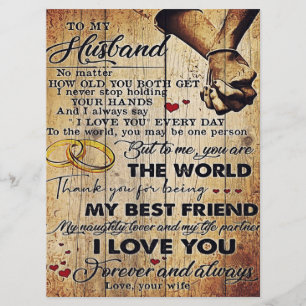 TO MY
Husband
No matter
HOW OLD YOU BOTH GET
I never stop holding
YOUR HANDS
And I always say
'I LOVE YOU' EVERY DAY
To the world, you may be one person
But to me, you are
THE WORLD
Thank you for being
MY BEST FRIEND
My naughty lover and my life partner
I LOVE YOU
Forever and always
Love, your wife